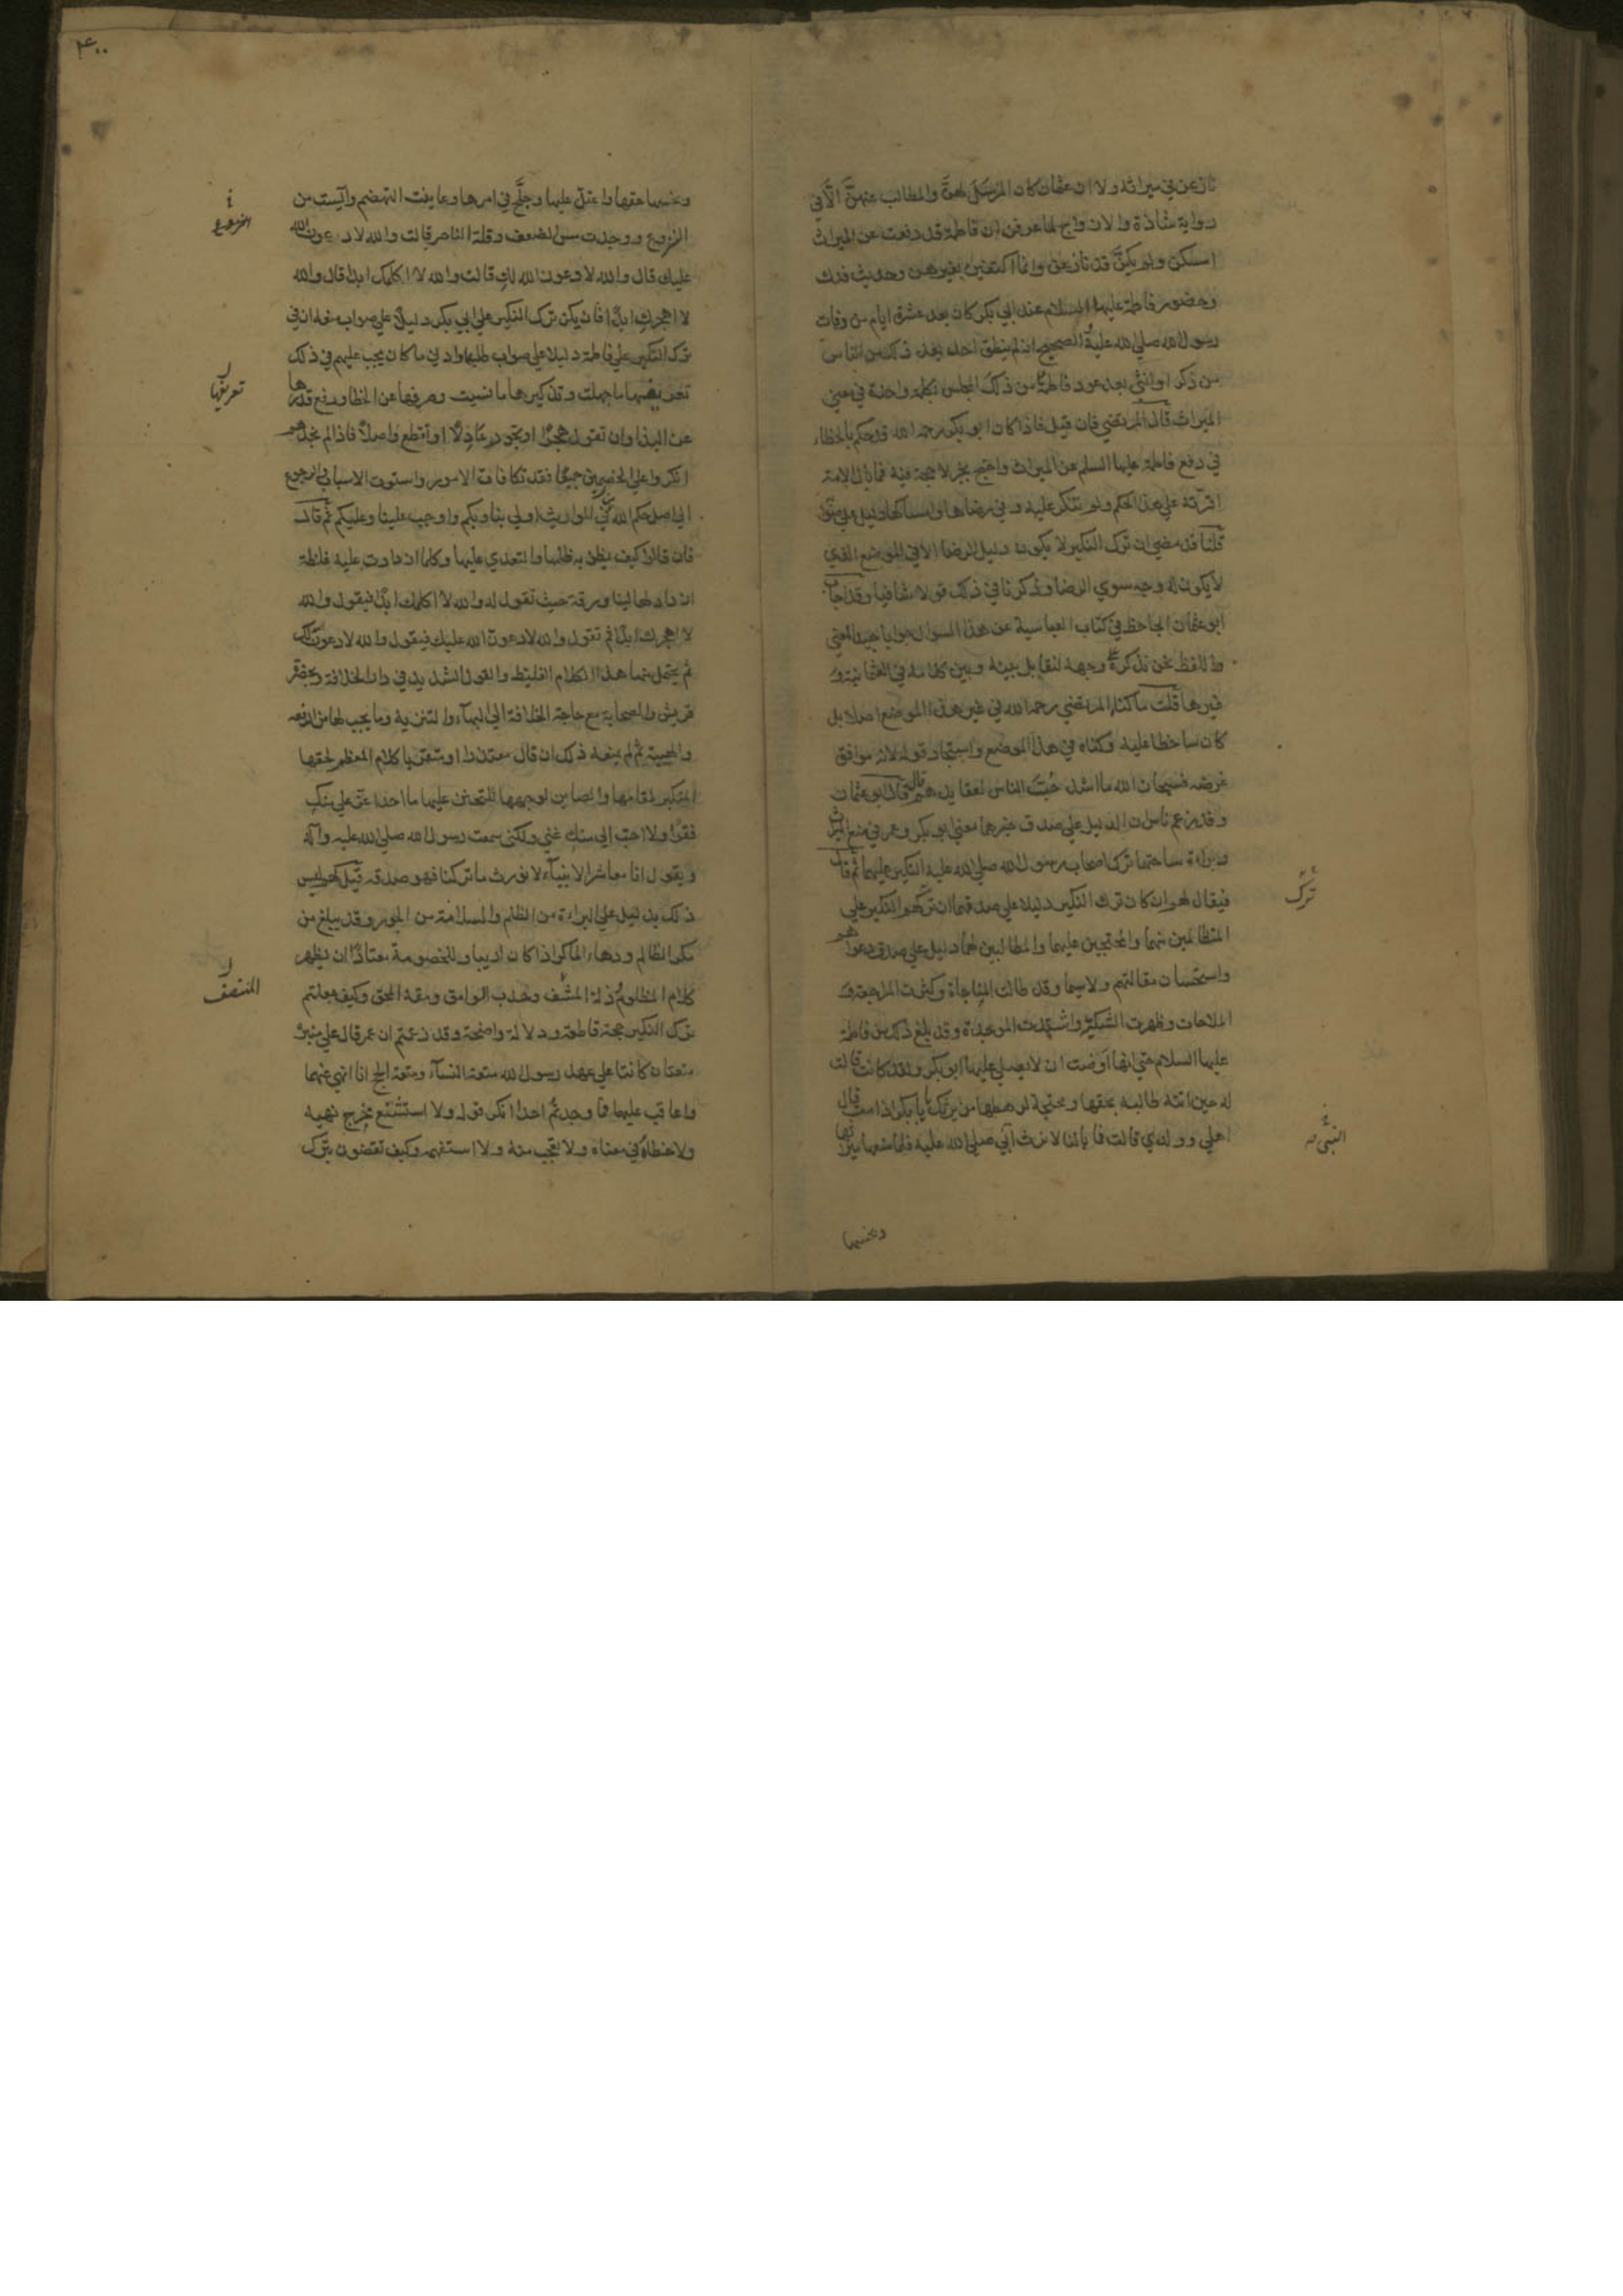 نازعن في ميراثه ولا ان عثمان كان المرسَل لهنّ والمطالب عنهنّ الّا في
رواية شاذة والازواج لما عرفن ان فاطمة قد دفعت عن الميراث
امسكن ولم يكنّ قد نازعن وانما اكتفين بغيرهن وحديث فدك
وحضور فاطمة عليها السلام عند ابي بكر كان بعد عشرة ايام من وفات
رسول الله صلى الله عليه والصحيح انه لم ينطق احد بعد ذلك من الناس
من ذكر او انثى بعد عود فاطمة من ذلك المجلس بكلمة واحدة في معنى
الميراث قال المرتضي فان قيل فاذا كان ابو بكر رحمه الله قد حكم بالخطاء
في دفع فاطمة عليها السلم عن الميراث واحتج بخبر لا حجة فيه فما بال الامة
اقرّته على هذا الحكم ولم تنكر عليه وفي رضاها وامساكها دليل على صوابه
قلنا قد مضي ان ترك النكير لا يكون دليل الرضا الا في الموضع الذي
لا يكون له وجه سوي الرضا وذكرنا في ذلك قولا شافيا وقد اجاب
ابو عثمان الجاحظ في كتاب العباسية عن هذا السوال جوابا جيد المعني
واللفظ نحن نذكره علي وجهه لنقابل بينه وبين كلامه في العثمانية و
غيرها قلت ما كناه المرتضي رحمه الله في غير هذا الموضع اصلا بل
كان ساخطا عليه وكناه في هذا الموضع واستجاد قوله لانه موافق
غرضه فسبحان الله ما اشد حُبّ الناس لعقايدهم قال قال ابو عثمان
وقد زعم ناس ان الدليل علي صدق خبرهما يعني ابو بكر وعمر في منع الميراث
وبراءة ساحتهما ترك اصحاب رسول الله صلي الله عليه النكير عليهما ثم قال
فيقال لهم ان كان ترك النكير دليلا علي صدقهما ان تركهم النكير علي
المتظالمين منهما والمحتجين عليهما والمطالبين لهما دليل علي صدق دعواهم
واستحسان مقالتهم ولا سيما وقد طالت المناجاة وكثرت المراجعة و
الملاحات وظهرت الشكيّة واشتدت الموجدة وقد بلغ ذلك من فاطمة
عليها السلام حتي انها اوصت ان لا يصلي عليها ابو بكر ولقد كانت قالت
له حين اتته طالبه بحقها ومحتجة لرهطها من يرثك يا ابا بكر اذا مت قال
اهلي وولدي قالت فما بالنا لا نرث النبي صلي الله عليه فلما منعها ميراثها
ترك
النبي
وبخسها
٤٠٠
وبخسها حقها واعتلّ عليها وجلّح في امرها وعاينت التهضم وآيست من
النزوع ووجدت مس الضعف وقلة الناصر قالت والله لادعونّ الله
عليك قال والله لادعونّ الله لكِ قالت والله لا اكلمك ابدا قال والله
لا اهجركِ ابدًا فان يكن ترك النكير علي ابي بكر دليلًا علي صواب منعه ان في
ترك النكير علي فاطمة دليلا علي صواب طلبها وادني ما كان يجب عليهم في ذلك
تعريفها ما جهلت وتذكيرها ما نسيت وصرفها عن الخطا ورفع قدرها
عن البذا وان تقول هجرًا او تجور عادلًا او تقطع واصلًا فاذا لم نجدهم
انكروا علي الخصمين جميعًا فقد تكافات الامور واستوت الاسباب والرجوع
الي اصل حكم الله في المواريث اولي بنا وبكم واوجب علينا وعليكم ثم قال
فان قالوا كيف يظن به ظلمها والتعدي عليها وكلما ازدادت عليه غلظة
ازداد لها لينا ورقة حيث تقول له والله لا اكلمك ابدًا فيقول والله
لا اهجرك ابدًا ثم تقول والله لادعونّ الله عليك فيقول والله لادعونّ الله لك
ثم يحتمل منها هذا الكلام الغليظ والقول الشديد في دار الخلافة وبحضرة
قريش والصحابة مع حاجة الخلافة الي البهآء والتنزيه وما يجب لها من الرفعه
والهيبة ثم لم يمنعه ذلك ان قال معتذرا او متقربا كلام المعظم لحقها
المكبر لمقامها والصاين لوجهها المتحنن عليها ما احد اعزّ علي منكِ
فقرًا ولا احبّ الي منكِ غني ولكني سمعت رسول الله صلي الله عليه وآله
ويقول انا معاشر الانبيآء لا نورث ما تركنا فهو صدقه قيل لهم ليس
ذلك بدليل علي البراءة من الظلم والسلامة من الجور وقد يبلغ من
مكر الظالم ودهاء الماكر اذا كان اريبا وللخصومة معتادًا ان يظهر
كلام المظلوم وذلة المنتصف وحدب الوامق ومقة المحق وكيف جعلتم
ترك النكير حجة قاطعة ودلالة واضحة وقد زعمتم ان عمر قال علي منبره
متعتان كانتا علي عهد رسول الله متعة النسآء ومتعة الحج انا انهي عنهما
واعاقب عليهما فما وجدتم احدا انكر قوله ولا استشنع مخرج نهيه
ولا خطاه في معناه ولا تعجب منه ولا استفهمه وكيف تقضون بترك
النزوع
تعريفها
المنتصف